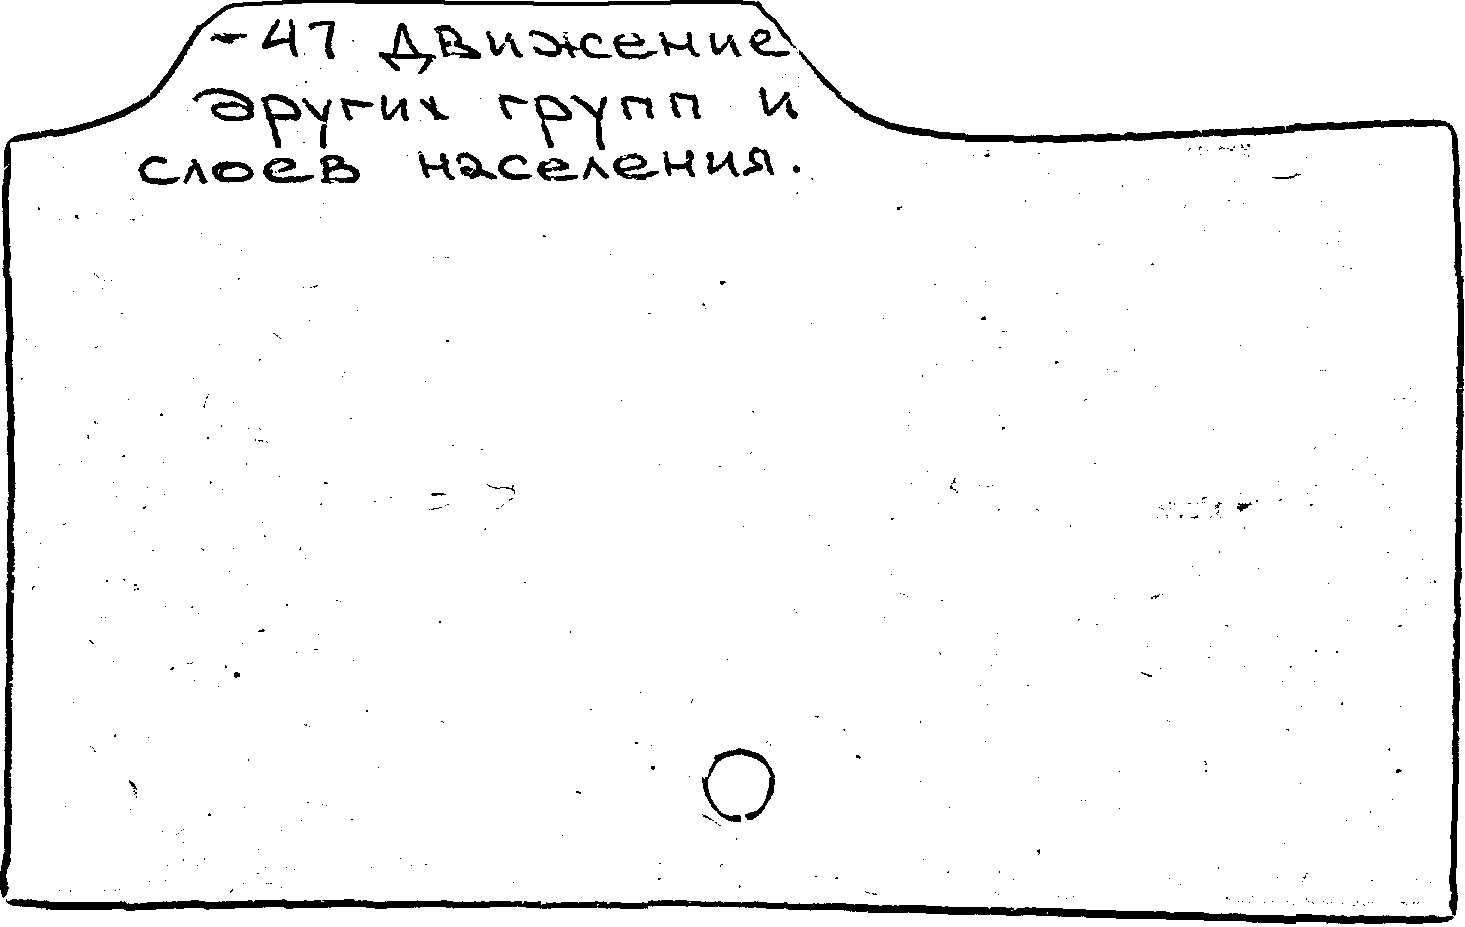 -47 Движение
других групп и
слоев населения.